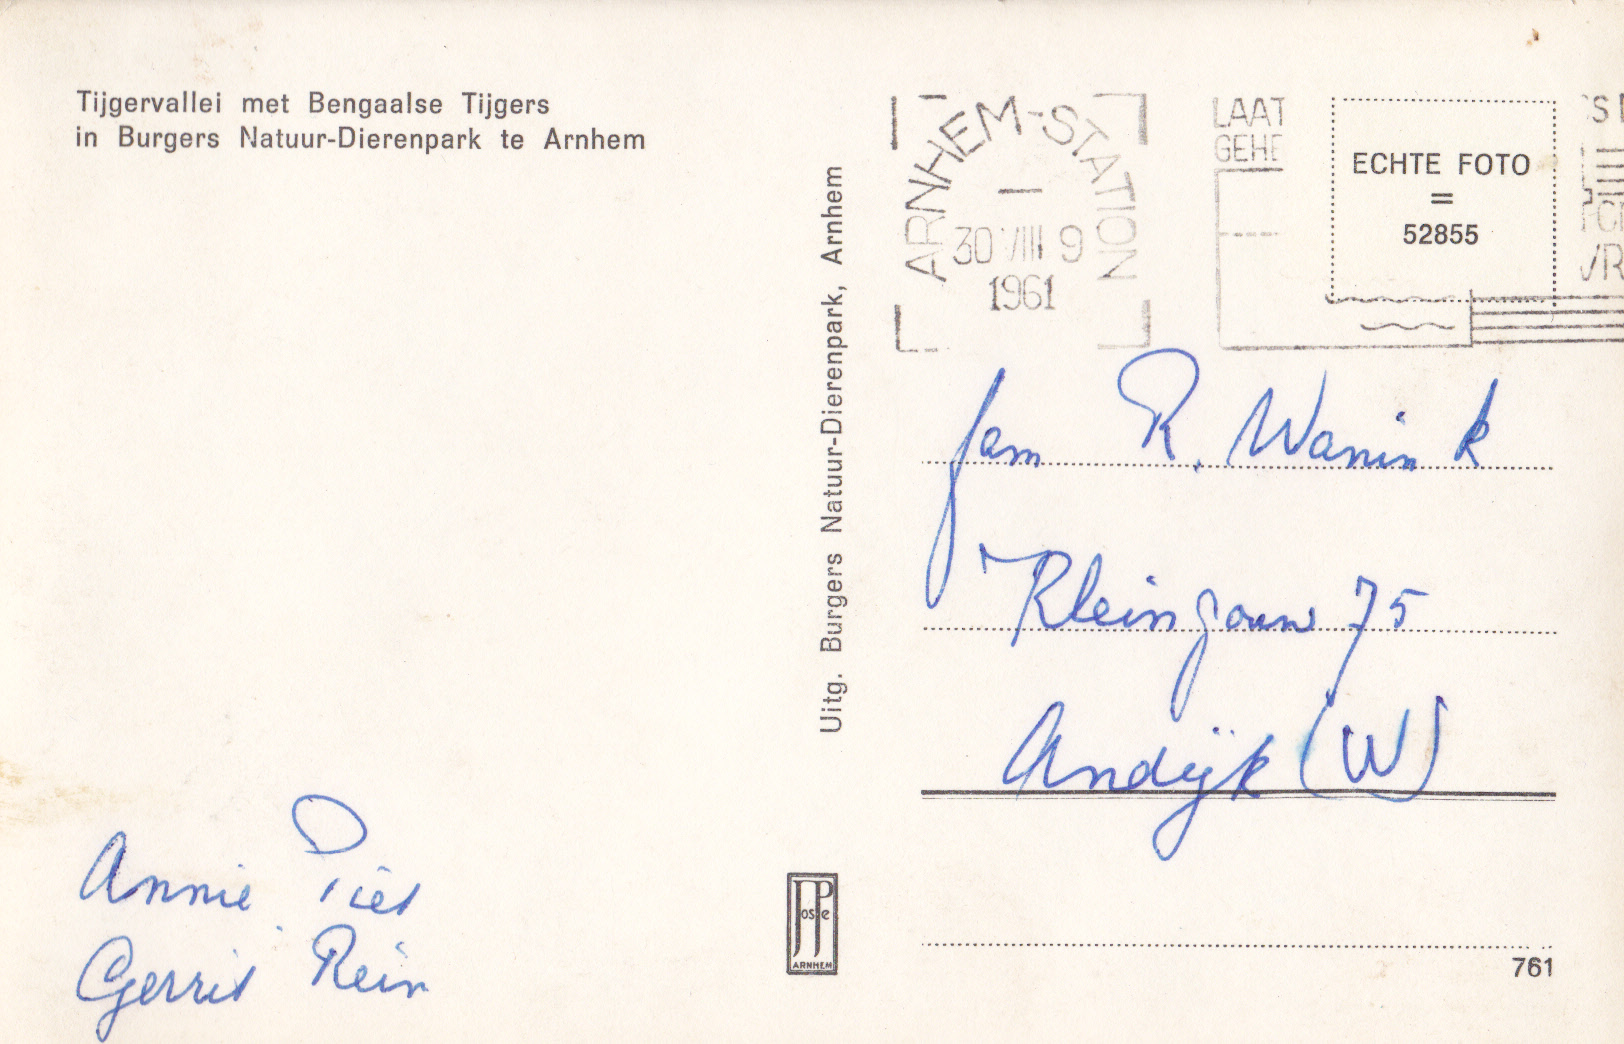 Tijgervallei met Bengaalse Tijgers
in Burgers Natuur-Dierenpark te Arnhem
Annie Piet
Gerrit Rein
Uitg. Burgers Natuur-Dierenpark, Arnhem
JosPe
ARNHEM
ARNHEM-STATION
30 VIII 9
1961
LAAT
GEHE
ECHTE FOTO
=
52855
VR
fam R. Wanink
Kleingouw 75
Andijk (W)
761